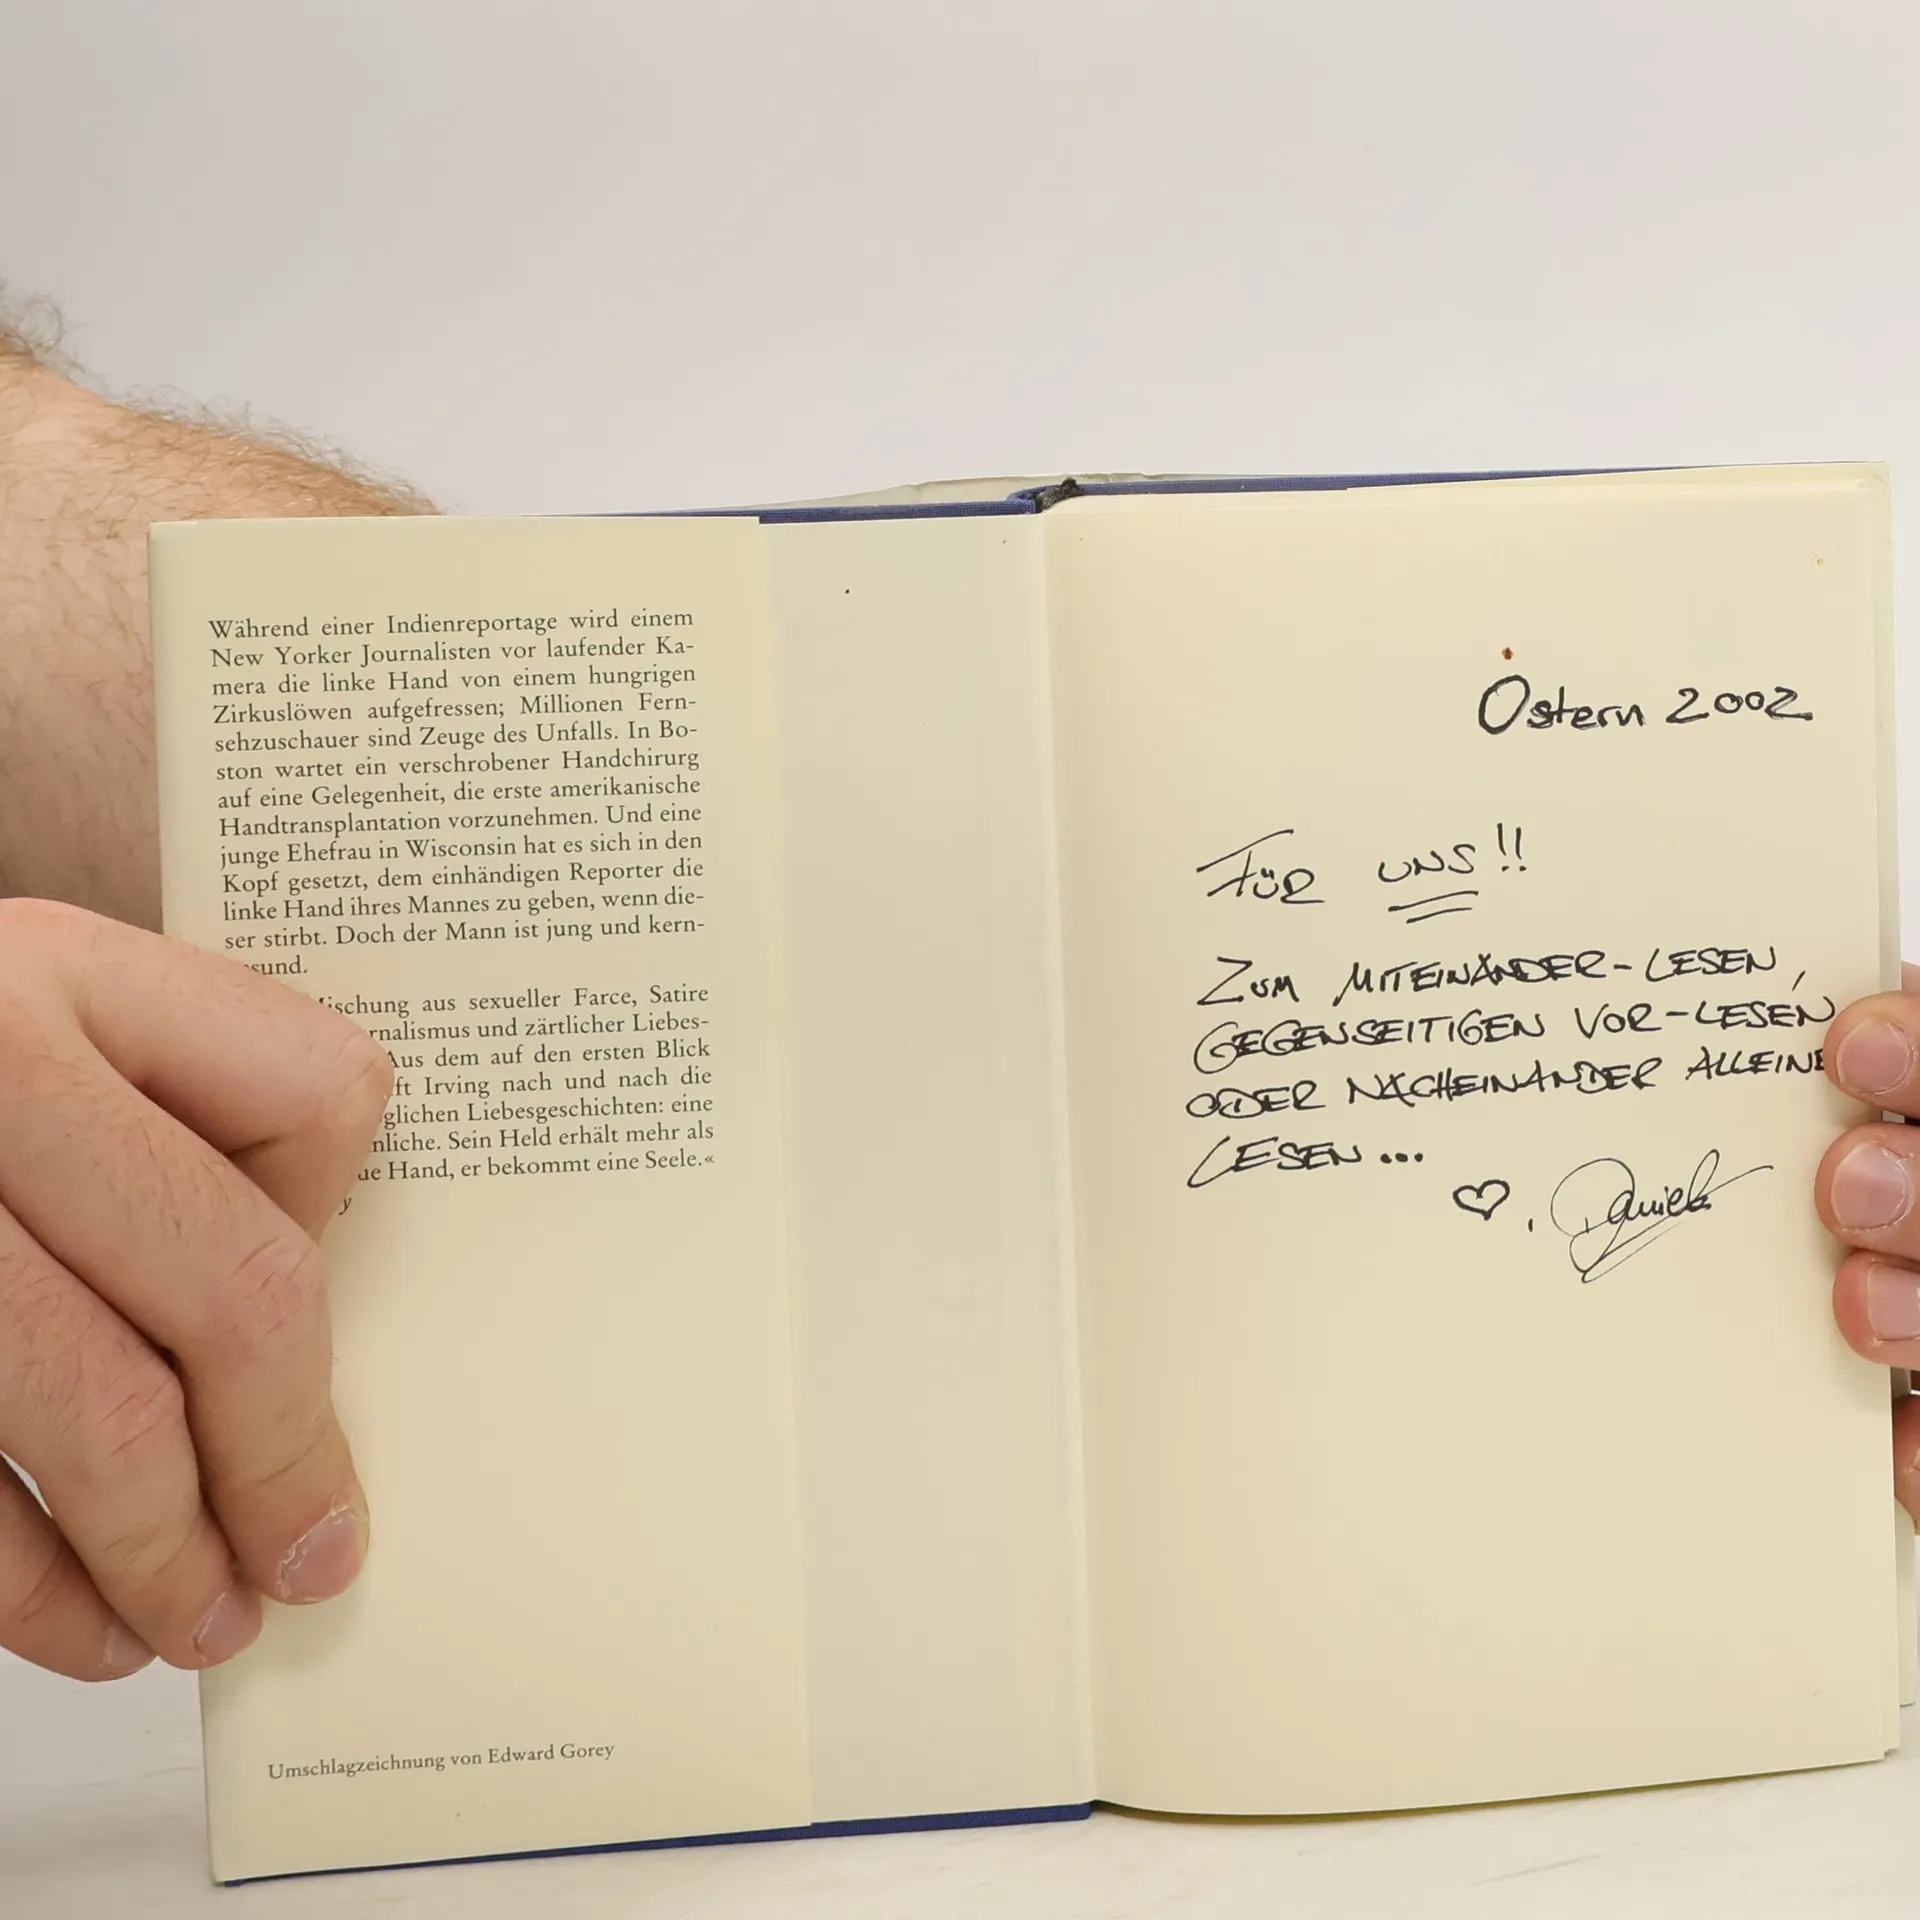 Während einer Indienreportage wird einem
New Yorker Journalisten vor laufender Ka-
mera die linke Hand von einem hungrigen
Zirkuslöwen aufgefressen; Millionen Fern-
sehzuschauer sind Zeuge des Unfalls. In Bo-
ston wartet ein verschrobener Handchirurg
auf eine Gelegenheit, die erste amerikanische
Handtransplantation vorzunehmen. Und eine
junge Ehefrau in Wisconsin hat es sich in den
Kopf gesetzt, dem einhändigen Reporter die
linke Hand ihres Mannes zu geben, wenn die-
ser stirbt. Doch der Mann ist jung und kern-
sund.
ischung aus sexueller Farce, Satire
rnalismus und zärtlicher Liebes-
Aus dem auf den ersten Blick
ft Irving nach und nach die
glichen Liebesgeschichten: eine
nliche. Sein Held erhält mehr als
ue Hand, er bekommt eine Seele.«
y
Umschlagzeichnung von Edward Gorey
Ostern 2002
FÜR UNS!!
ZUM MITEINANDER-LESEN,
GEGENSEITIGEN VOR-LESEN
ODER NACHEINANDER ALLEINE
LESEN...
♡, Daniela